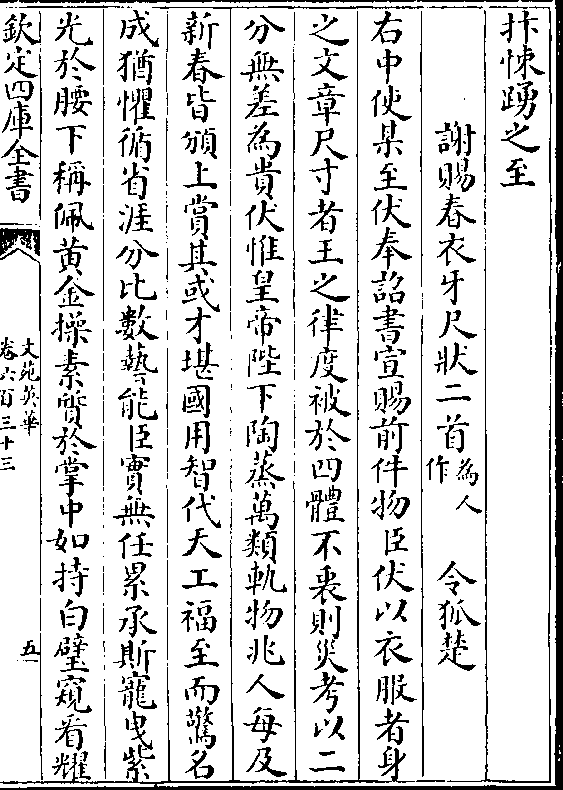 抃悚踴之至
謝賜春衣牙尺狀二首為人作 令狐楚
右中使某至伏奉詔書宣賜前件物臣伏以衣服者身
之文章尺寸者王之律度被於四體不衷則災考以二
分無差為貴伏惟皇帝陛下陶蒸萬類軌物兆人每及
新春皆頒上賞其或才堪國用智代天工福至而驚名
成猶懼循省涯分比數藝能臣實無任累承斯寵曵紫
光於腰下稱佩黄金操素質於掌中如持白璧窺看耀
欽定四庫全書
文苑英華
卷六百三十三
五